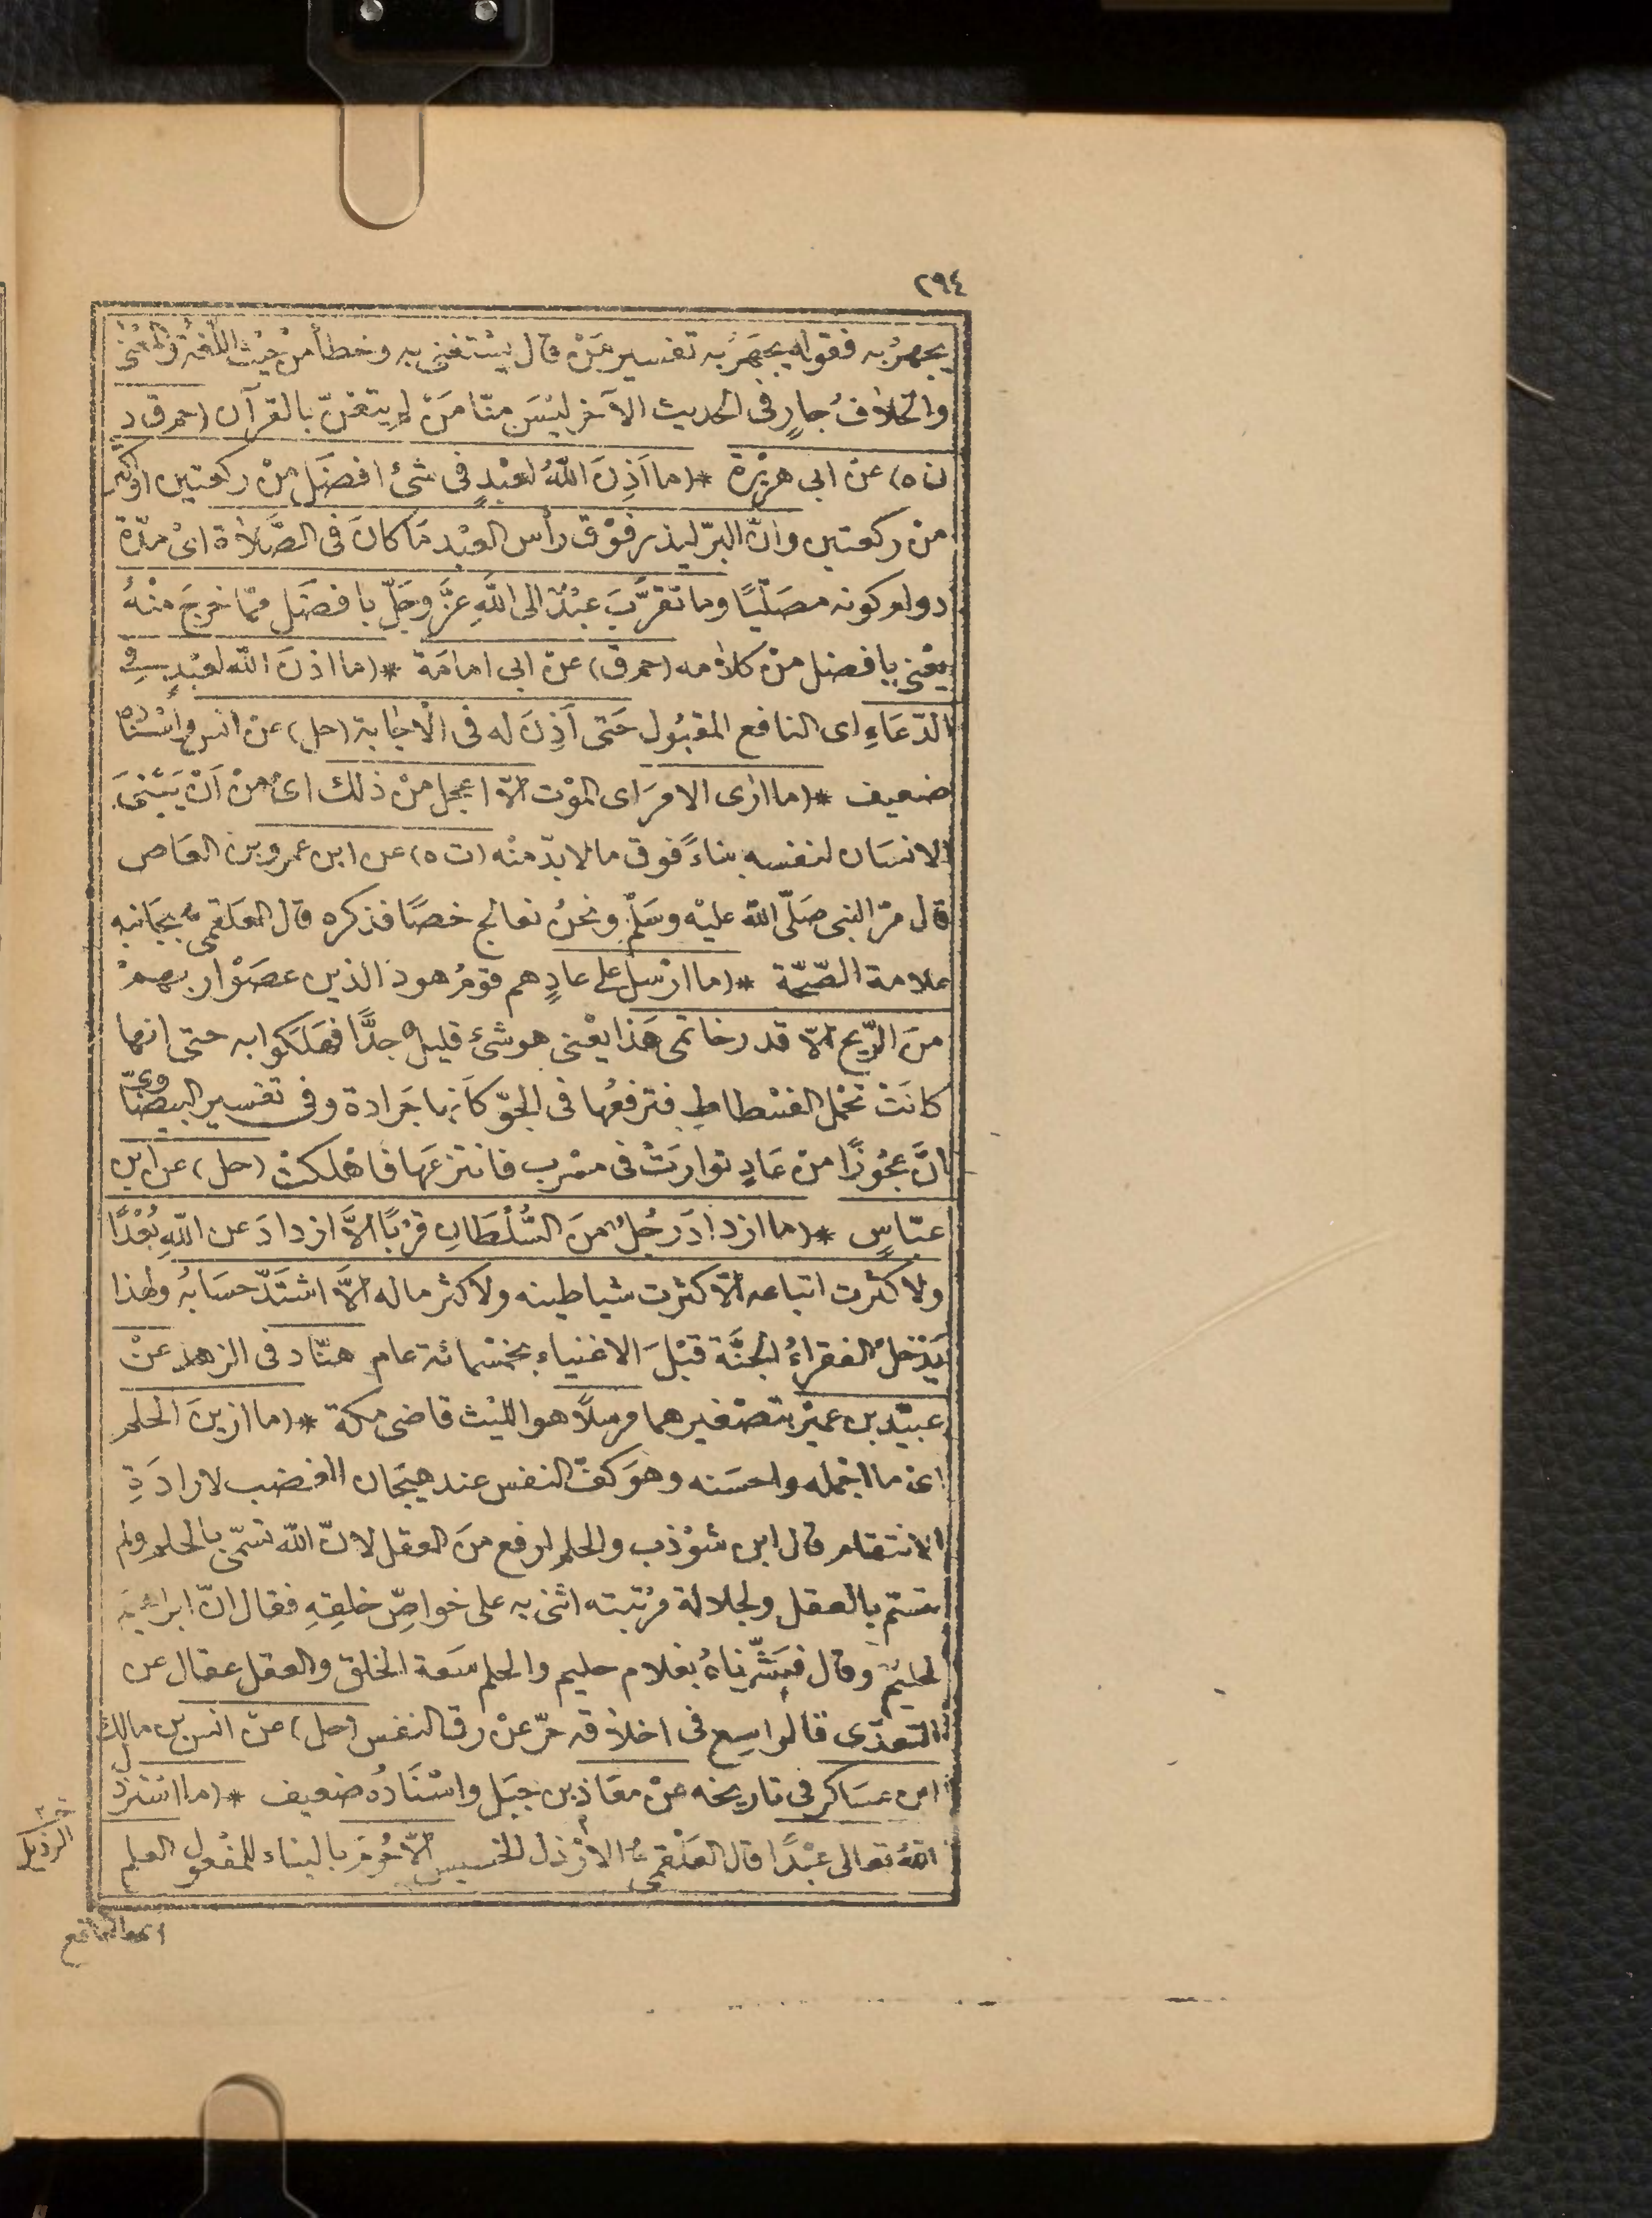 ٢٩٤
يجهرُ به فقوله يجهَرُ به تفسير مَنْ قال يسْتغنى به وخطأ منْ حيْث اللّغة والمعْنى
والخلافُ جارٍ فى الحديث الآخر ليْسَ منّا مَنْ لم يتغنّ بالقرآن (حم ق د
ن ه) عن ابى هريْرة * (ما اَذِنَ اللّٰهُ لعبْدٍ فى شئ افضَل منْ ركعتين اوْ اكثر
من ركعتين وانّ البرّ ليذر فوْق رأس العبْد مَا كانَ فى الصَّلاة اىْ مدّة
دوام كونه مصَلّيًا وما تقرَّبَ عبْدٌ الى اللّٰهِ عزَّ وجَلّ بافضَل ممّا خرجَ منْهُ
يعْنى بافضل منْ كلامه (حم ق) عن ابى امامَة * (ما اذنَ اللّٰه لعبْدٍ فى
الدّعَاءِ اى النافع المقبُول حَتى اَذِنَ له فى الاجابة (حل) عن انس واسْنَاده
ضعيف * (ما ارى الامرَ اى الموْت الّا اعجل منْ ذلك اىْ منْ اَنْ يَبْنىَ
الانسَان لنفسه بناءً فوق ما لابدّ منْه (ت ه) عن ابن عمرو بن العَاص
قال مرّ النبى صَلّى اللّٰه عليْه وسَلّم ونحنُ نعالج خصًا فذكره قال العلقمى بجَانبه
علامة الصّحّة * (ما ارْسل على عادٍ هم قومُ هود الذين عصَوْا ربهمْ
منَ الرّيح الّا قدر خاتمى هَذا يعْنى هو شئ قليلٌ جدًّا فهَلَكوا به حتى انها
كانَتْ تحْمل الفسْطاط فترفعُها فى الجوّ كَأنها جَرادة وفى تفسير البيضاوى
انَّ عجُوزًا منْ عَادٍ توارتْ فى سرب فانتزعَها فاهْلكتْ (حل) عن ابن
عبّاسٍ * (ما ازدادَ رجُلٌ منَ السُّلْطَانِ قرْبًا الَّا ازدادَ عن اللّٰهِ بُعْدًا
ولا كثرت اتباعه الّا كثرت شياطينه ولا كثر ماله الَّا اشتَدّ حسَابهُ ولهذا
يَدْخلُ الفقراءُ الجنَّة قبْلَ الاغنياء بخمْسمائة عام هنّاد فى الزهد عنْ
عبيْد بن عميْر بتصْغيرهما مرسلًا هو الليْث قاضى مكة * (ما ازينَ الحلم
اىْ ما اجمله واحسَنه وهوَ كفّ النفس عند هيجَان الغضب لارادَةِ
الانتقام قال ابن شوْذب والحلم ارفع منَ العقل لانّ اللّٰه تسَمّى بالحلم ولم
يتسم بالعقل ولجلالة مرْتبته اثنى به على خواصِّ خلقِهِ فقال انّ ابراهيم
لحليم وقال فبَشّرْناهُ بغلام حليم والحلم سَعة الخلق والعقل عقال عن
التعدّى فالواسِع فى اخلاقه حرّ عنْ رق النفس (حل) عنْ انس بن مالك
ابن عسَاكر فى تاريخه عنْ معَاذ بن جبَل واسْنَادُه ضعيف * (ما اسْترْذل
اللّٰهُ تعالى عبْدًا قال العلْقمىُّ الارْذل الخسيس الّا حُرمَ بالبناء للمفْعول العلم
الرذيل
اى النافع